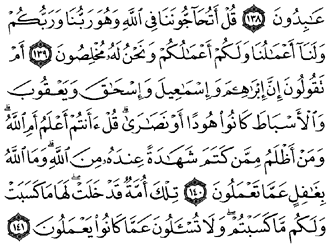 عَٰبِدُونَ ﴿١٣٨﴾ قُلْ أَتُحَآجُّونَنَا فِى ٱللَّهِ وَهُوَ رَبُّنَا وَرَبُّكُمْ
وَلَنَآ أَعْمَٰلُنَا وَلَكُمْ أَعْمَٰلُكُمْ وَنَحْنُ لَهُۥ مُخْلِصُونَ ﴿١٣٩﴾ أَمْ
تَقُولُونَ إِنَّ إِبْرَٰهِۦمَ وَإِسْمَٰعِيلَ وَإِسْحَٰقَ وَيَعْقُوبَ
وَٱلْأَسْبَاطَ كَانُوا۟ هُودًا أَوْ نَصَٰرَىٰ ۗ قُلْ ءَأَنتُمْ أَعْلَمُ أَمِ ٱللَّهُ ۗ
وَمَنْ أَظْلَمُ مِمَّن كَتَمَ شَهَٰدَةً عِندَهُۥ مِنَ ٱللَّهِ ۗ وَمَا ٱللَّهُ
بِغَٰفِلٍ عَمَّا تَعْمَلُونَ ﴿١٤٠﴾ تِلْكَ أُمَّةٌ قَدْ خَلَتْ ۖ لَهَا مَا كَسَبَتْ
وَلَكُم مَّا كَسَبْتُمْ ۖ وَلَا تُسْـَٔلُونَ عَمَّا كَانُوا۟ يَعْمَلُونَ ﴿١٤١﴾